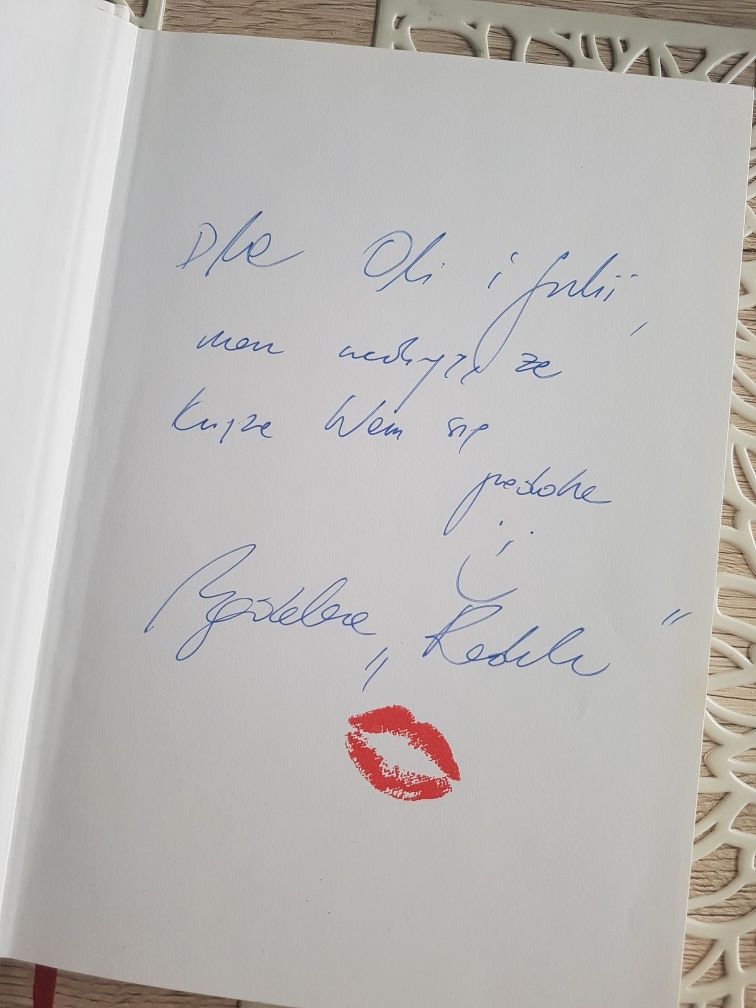 Dla Oli i Julii,
mam nadzieję że
książka Wam się
spodoba
:)
Magdalena